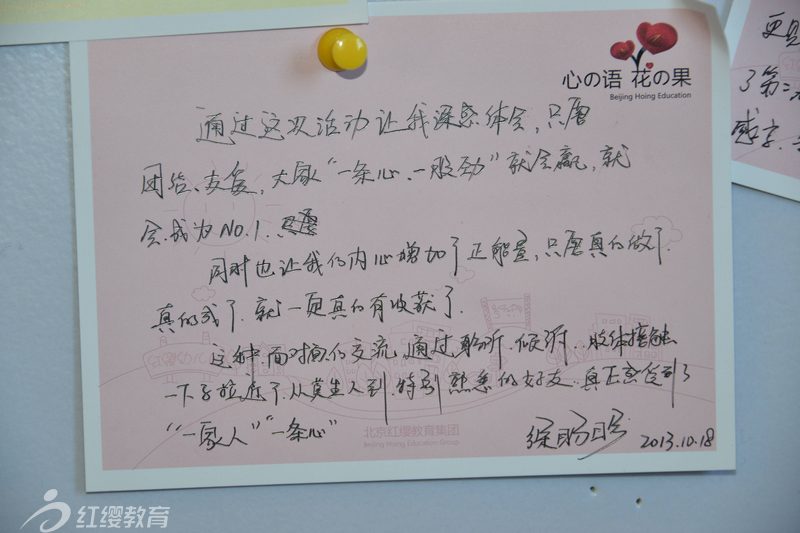 心の语 花の果
Beijing Hoing Education
更具
了第二次
感
通过这次活动让我深感体会,只要
团结、友爱,大家“一条心、一股劲”就会赢,就
会成为NO.1.
同时也让我们内心增加了正能量,只要真的做了
真的成了.就一定真的有收获了.
这种面对面的交流,通过聆听、倾诉、肢体接触
一下子拉近了.从莫生人到特别熟悉的好友.真正感觉到了
“一家人”“一条心”
2013.10.18
北京红缨教育集团
Beijing Hoing Education Group
红缨教育